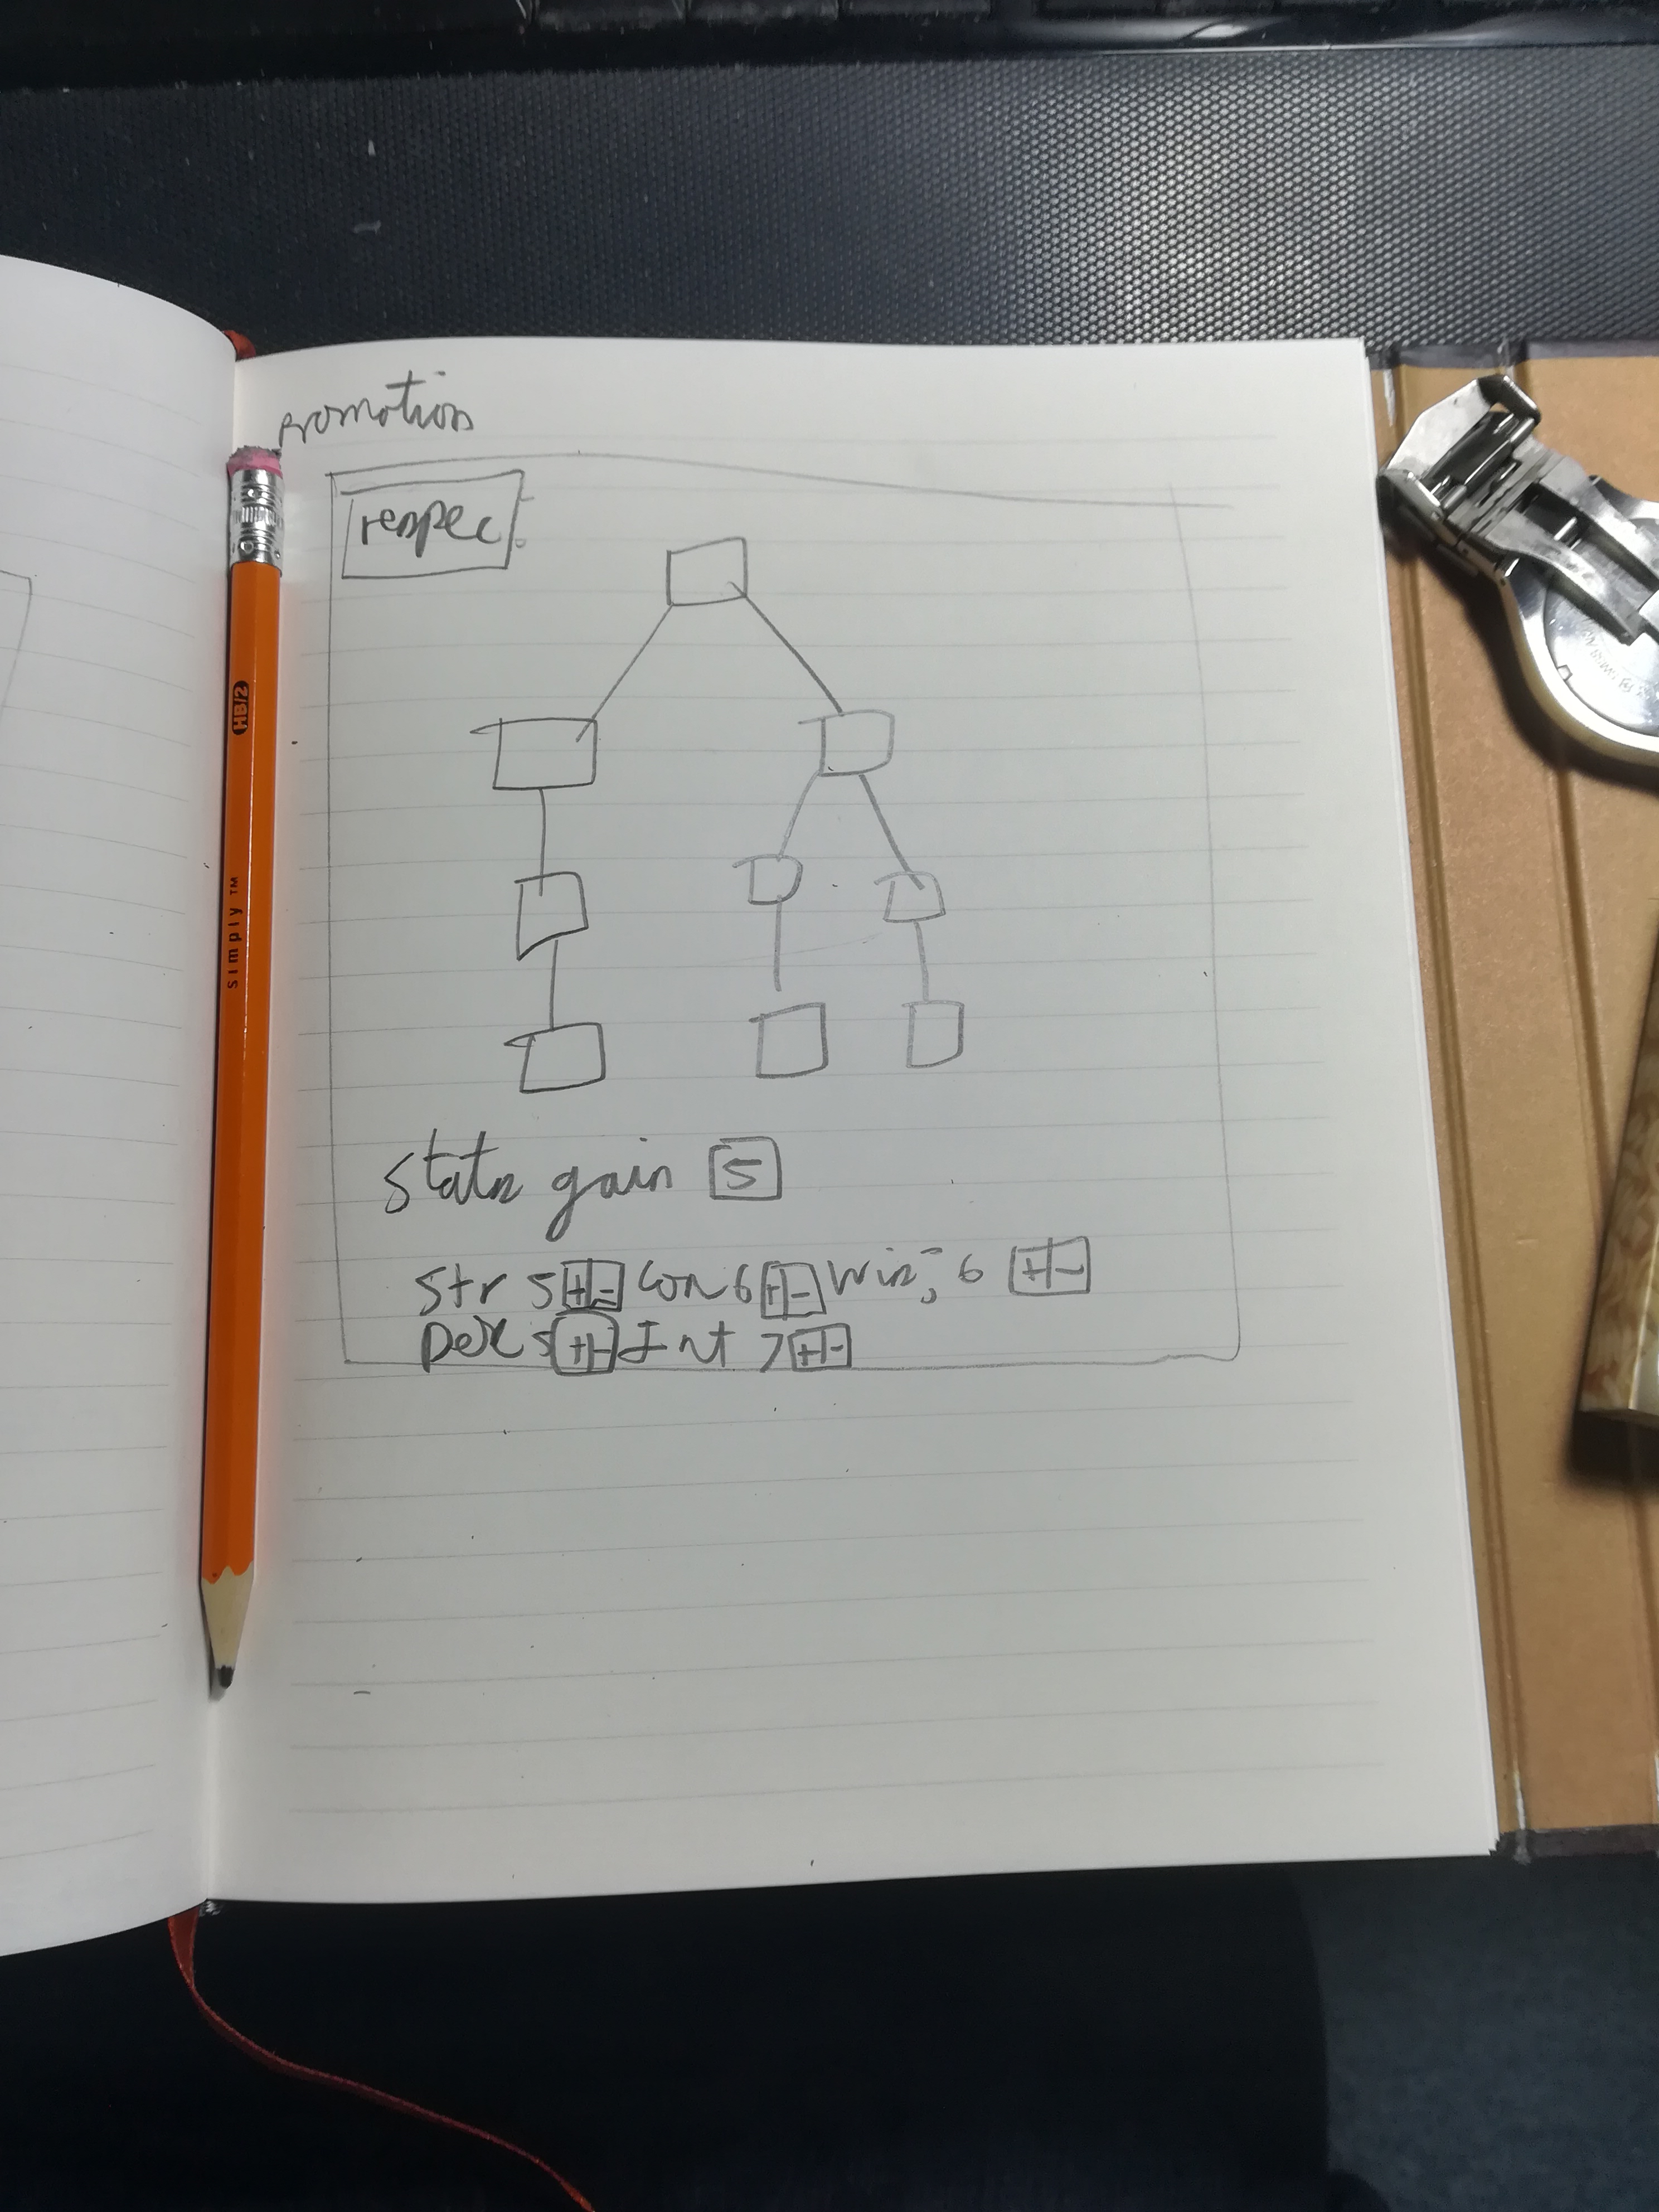 promotion
respec
stats gain 5
Str 5 + - Con 6 + - Wis 6 + -
Dex 5 + - Int 7 + -
HB/2
simply ™